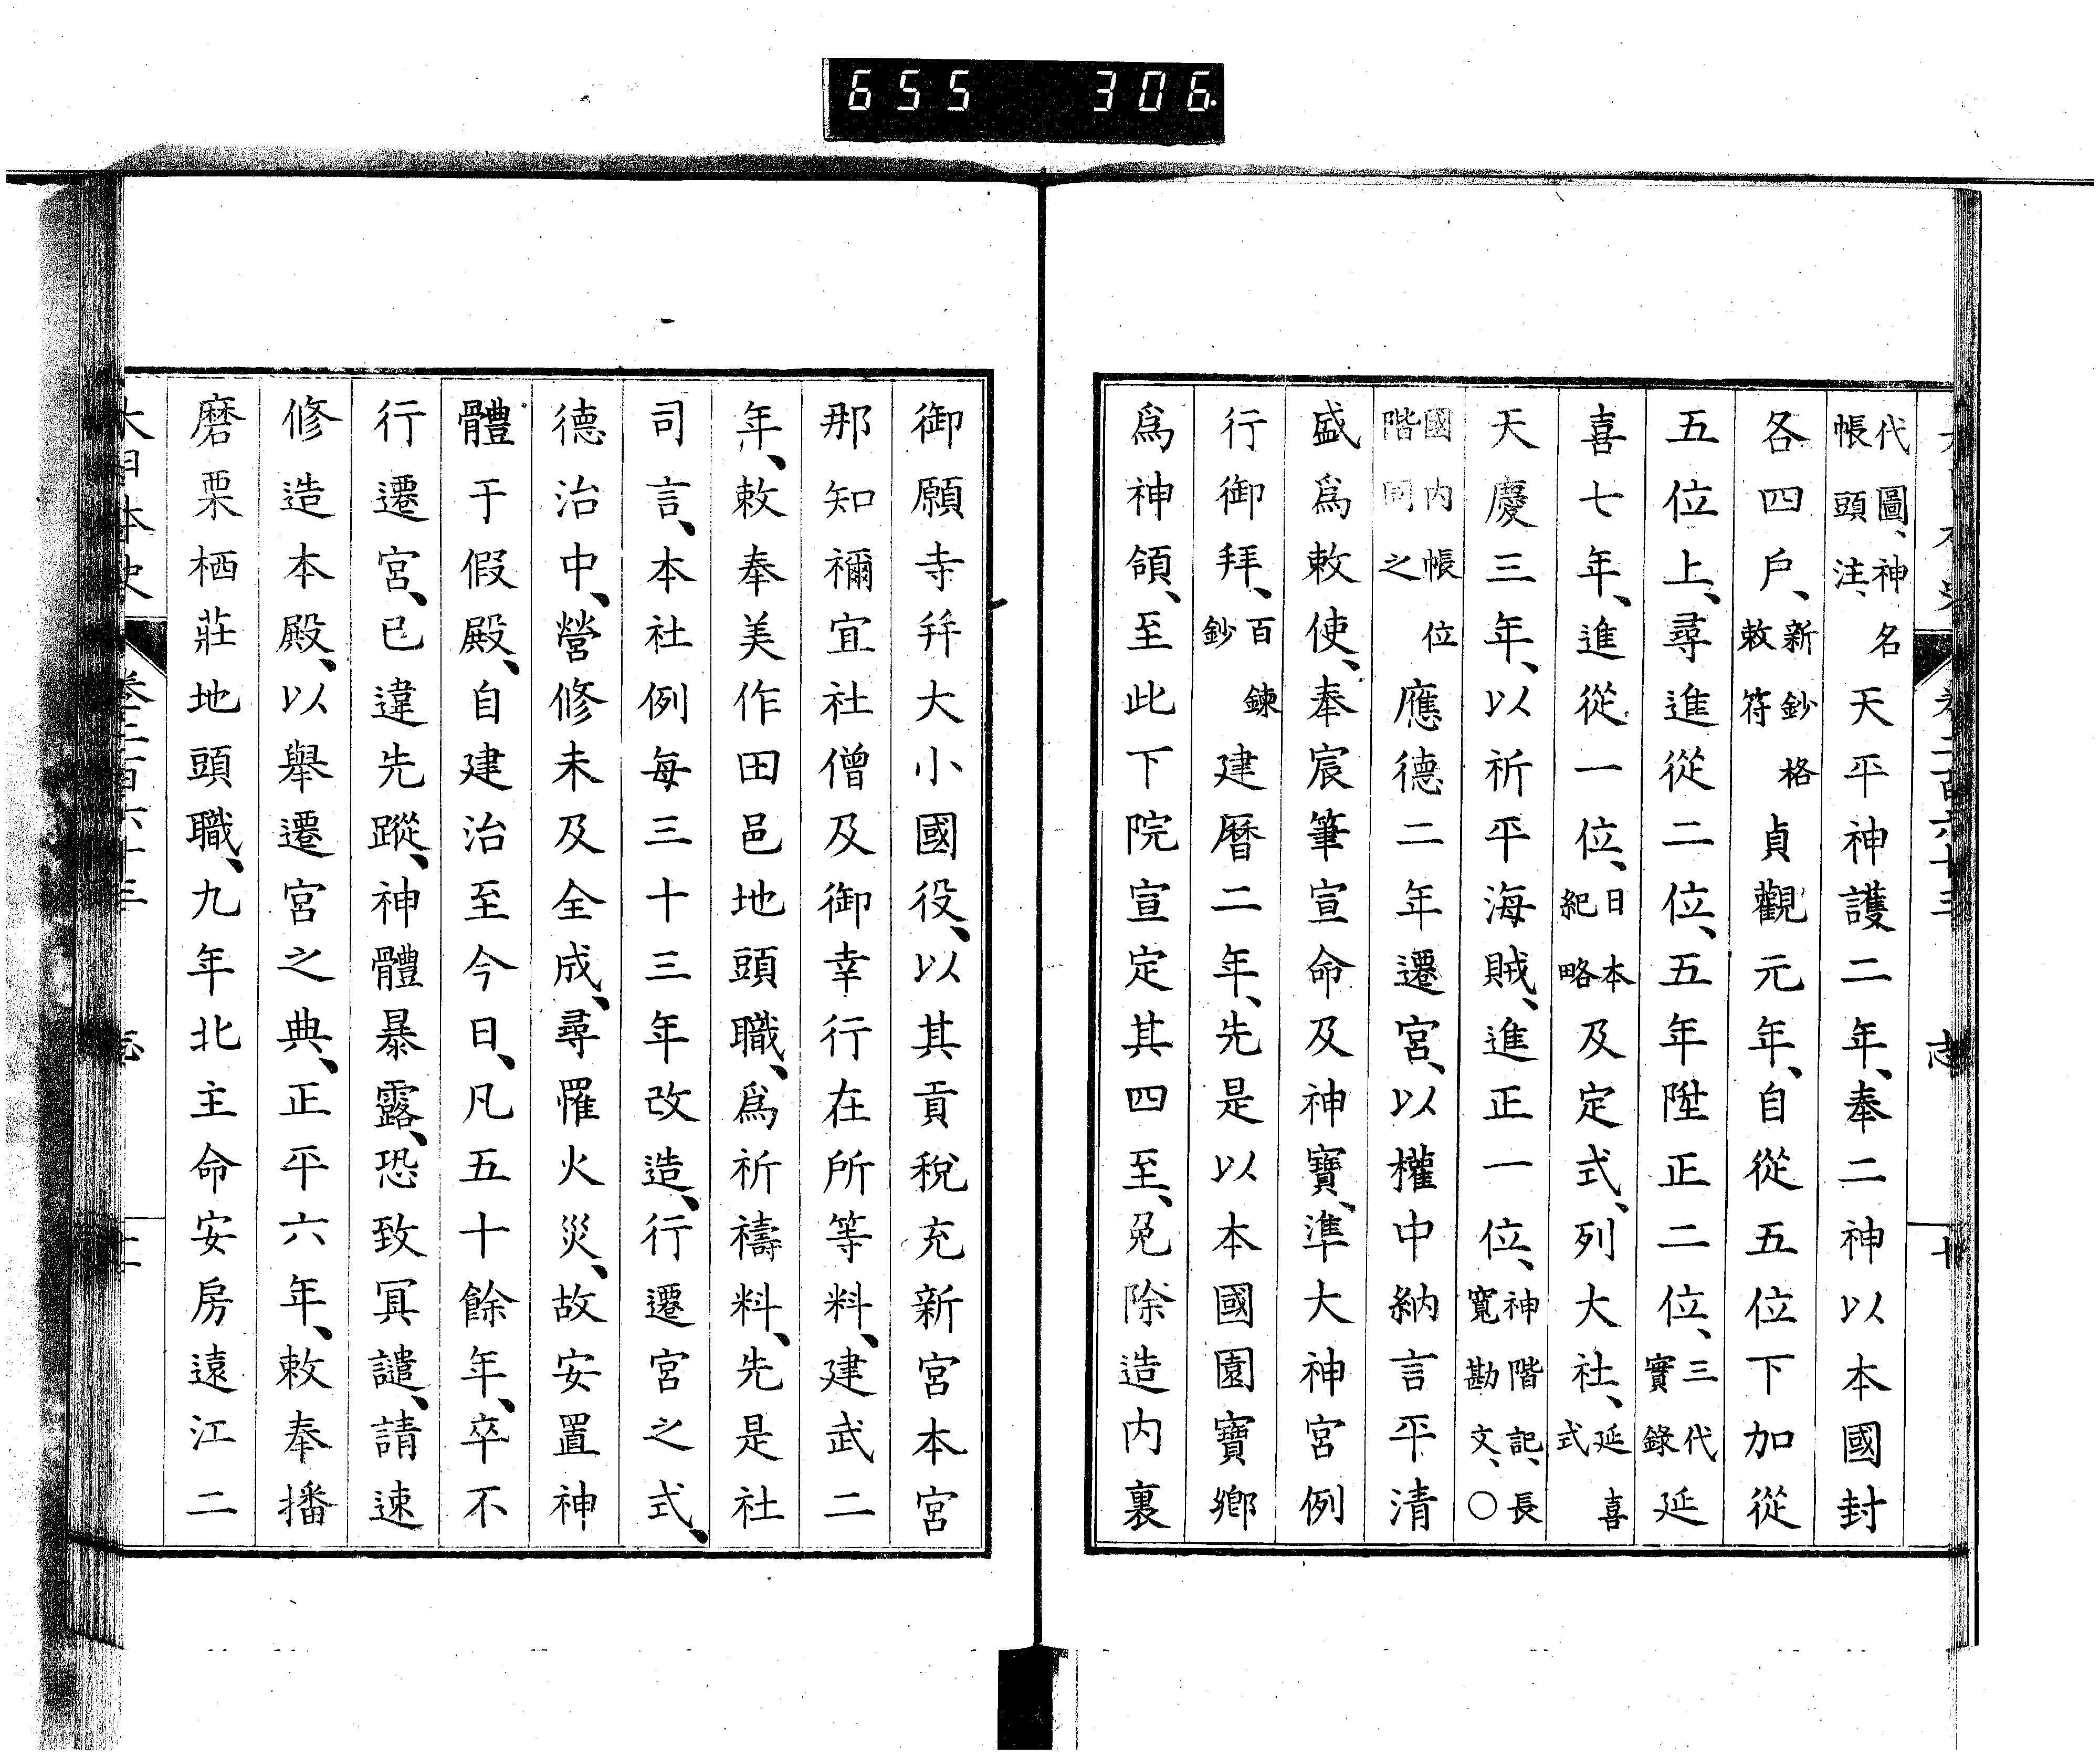 655 306
代圖、神名帳頭注、天平神護二年、奉二神以本國封
各四戶、新鈔格敕符貞觀元年、自從五位下加從
五位上、尋進從二位、五年陞正二位、三代實錄延
喜七年、進從一位、日本紀略及定式、列大社、延喜式
天慶三年、以祈平海賊、進正一位、神階記、長寬勘文、〇
國內帳位階同之應德二年遷宮、以權中納言平清
盛爲敕使、奉宸筆宣命及神寶、準大神宮例
行御拜、百鍊鈔建曆二年、先是以本國園寶鄉
爲神領、至此下院宣定其四至、免除造內裏
御願寺幷大小國役、以其貢稅充新宮本宮
那知禰宜社僧及御幸行在所等料、建武二
年、敕奉美作田邑地頭職、爲祈禱料、先是社
司言、本社例每三十三年改造、行遷宮之式、
德治中、營修未及全成、尋罹火災、故安置神
體于假殿、自建治至今日、凡五十餘年、卒不
行遷宮、已違先蹤、神體暴露、恐致冥譴、請速
修造本殿、以舉遷宮之典、正平六年、敕奉播
磨栗栖莊地頭職、九年北主命安房遠江二
大日本史